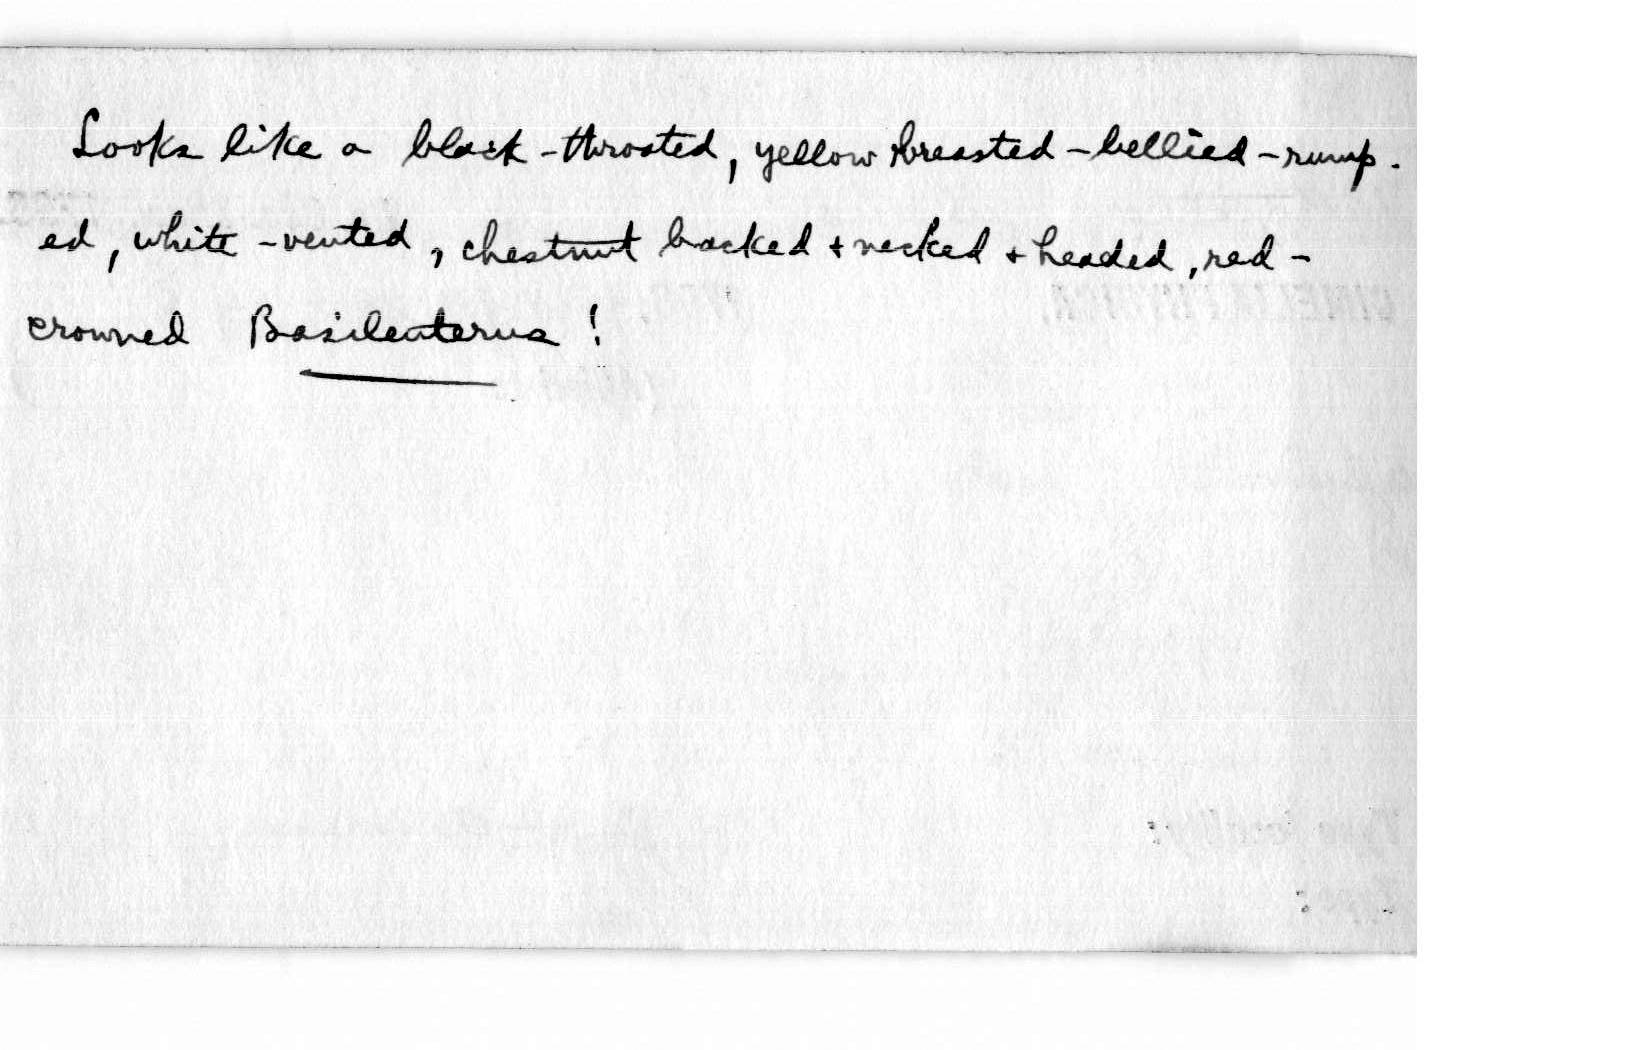 Looks like a black-throated, yellow breasted-bellied-rump-
ed, white-vented, chestnut backed + necked + headed, red-
crowned Basileuterus!